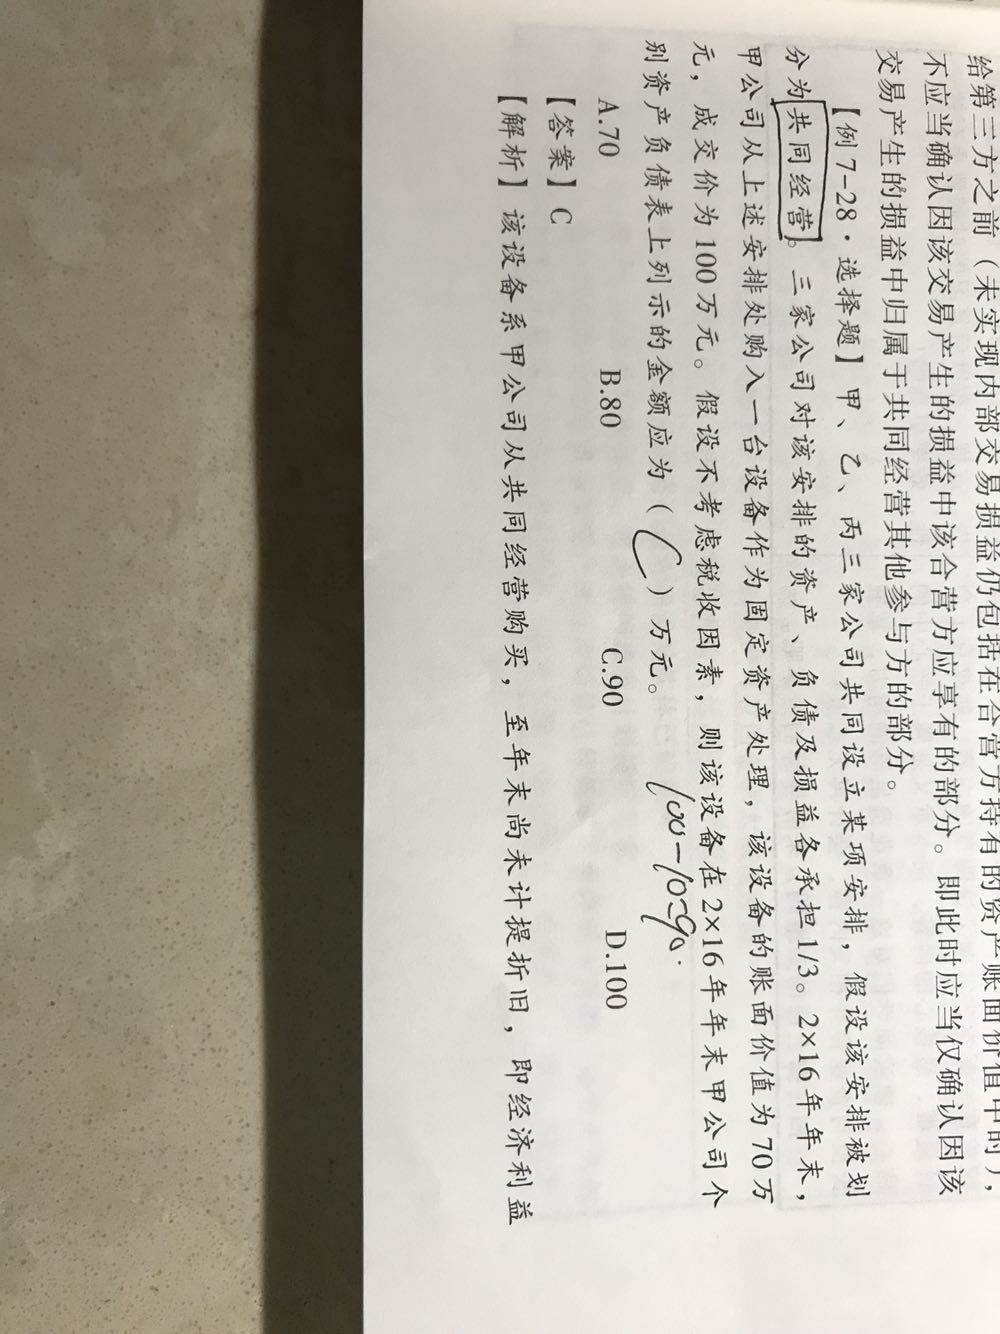 给第三方之前（未实现内部交易损益仍包括在合营方持有的资产账面价值中时），
不应当确认因该交易产生的损益中该合营方应享有的部分。即此时应当仅确认因该
交易产生的损益中归属于共同经营其他参与方的部分。
【例7-28·选择题】甲、乙、丙三家公司共同设立某项安排，假设该安排被划
分为共同经营。三家公司对该安排的资产、负债及损益各承担1/3。2×16年年末，
甲公司从上述安排处购入一台设备作为固定资产处理，该设备的账面价值为70万
元，成交价为100万元。假设不考虑税收因素，则该设备在2×16年年末甲公司个
别资产负债表上列示的金额应为（C）万元。
100-10=90.
A.70 B.80 C.90 D.100
【答案】C
【解析】该设备系甲公司从共同经营购买，至年末尚未计提折旧，即经济利益